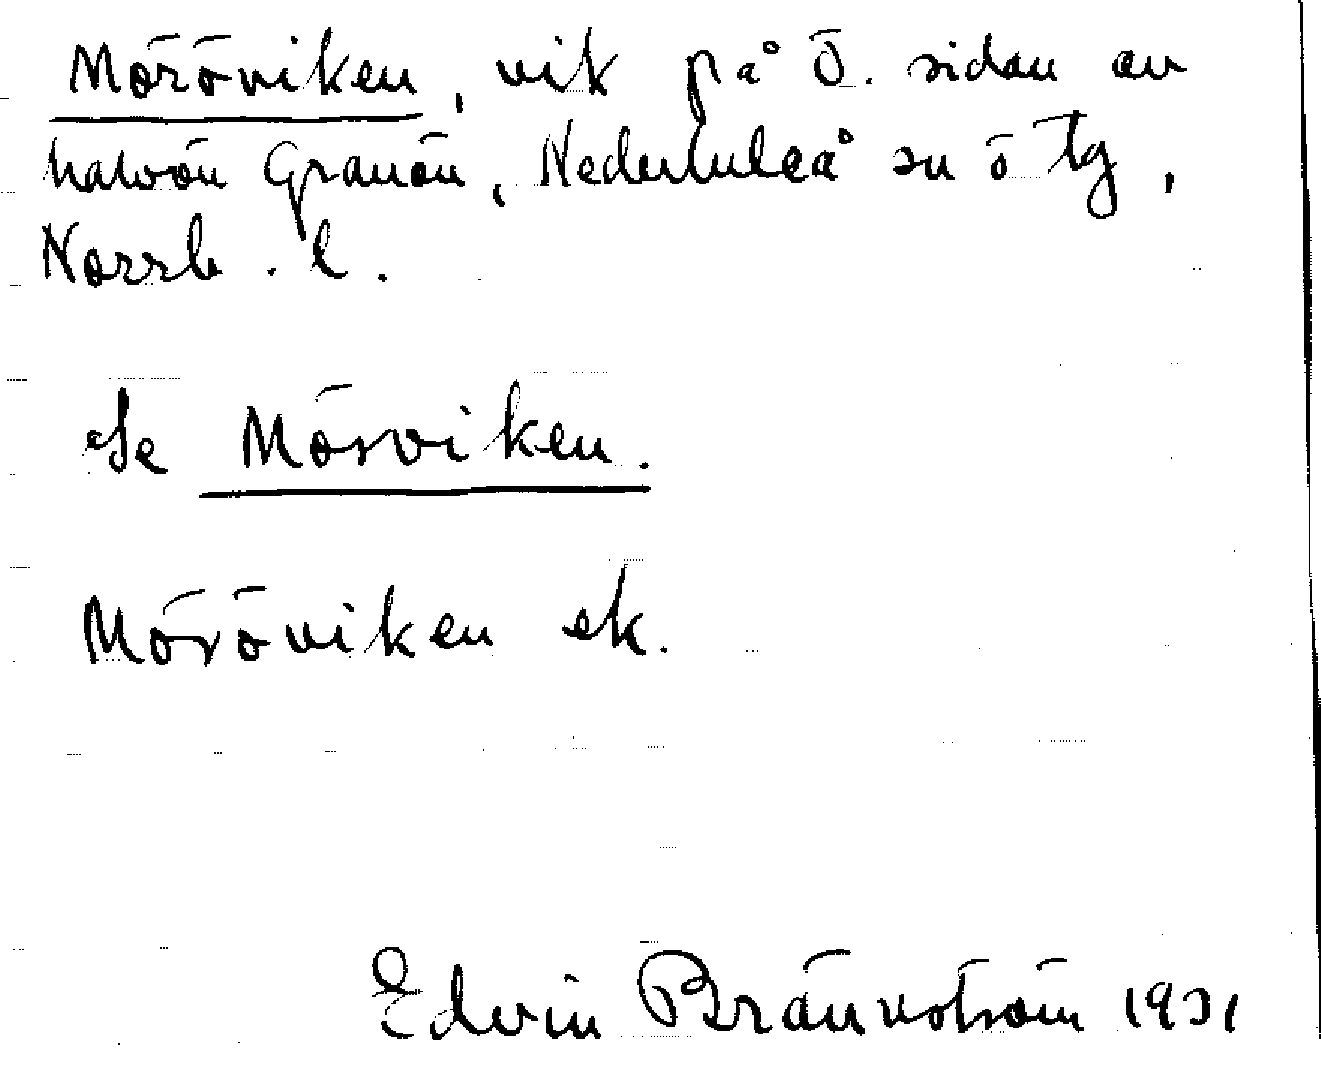 Möröviken, vik på Ö. sidan av
halvön Granön, Nederluleå sn o tg,
Norrb. l.
Se Mörviken.
Möröviken ek.
Edvin Brännström 1931